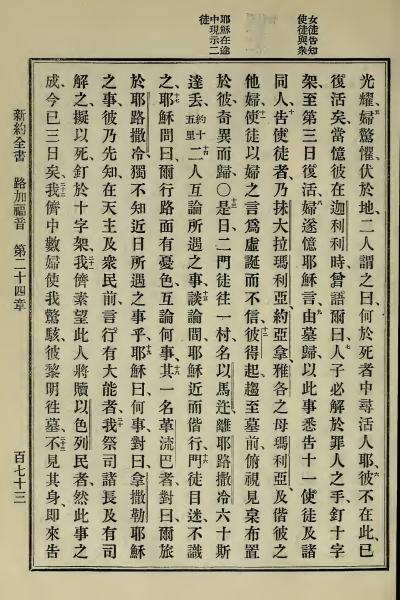 女徒告知
使徒與衆
耶穌在途
中現示二
徒
光耀、婦驚懼伏於地、二人謂之曰、何於死者中尋活人耶、六彼不在此、已
復活矣、當憶彼在迦利利時、曾語爾曰、七人子必解於罪人之手、釘十字
架、至第三日復活、八婦遂憶耶穌言、九由墓歸、以此事悉告十一使徒及諸
同人、十告使徒者、乃抹大拉瑪利亞、約亞拿、雅各之母瑪利亞、及偕彼之
他婦、十一使徒以婦之言爲虛誕而不信、十二彼得起、趨至墓前、俯視見枲布置
於彼、奇異而歸○十三是日、二門徒往一村、名以馬迕、離耶路撒冷六十斯
達丟、約十五里十四二人互論所遇之事、十五談論間、耶穌近而偕行、十六門徒目迷不識
之、十七耶穌問曰、爾行路面有憂色、互論何事、十八其一名革流巴者、對曰、爾旅
於耶路撒冷、獨不知近日所遇之事乎、十九耶穌曰、何事、對曰、拿撒勒耶穌
之事、彼乃先知、在天主及衆民前、言行有大能者、二十我祭司諸長及有司
解之、擬以死、釘於十字架、二十一我儕素望此人將贖以色列民者、然此事之
成、今已三日矣、二十二我儕中數婦使我驚駭、彼黎明往墓、二十三不見其身、卽來告
新約全書 路加福音 第二十四章 百七十三